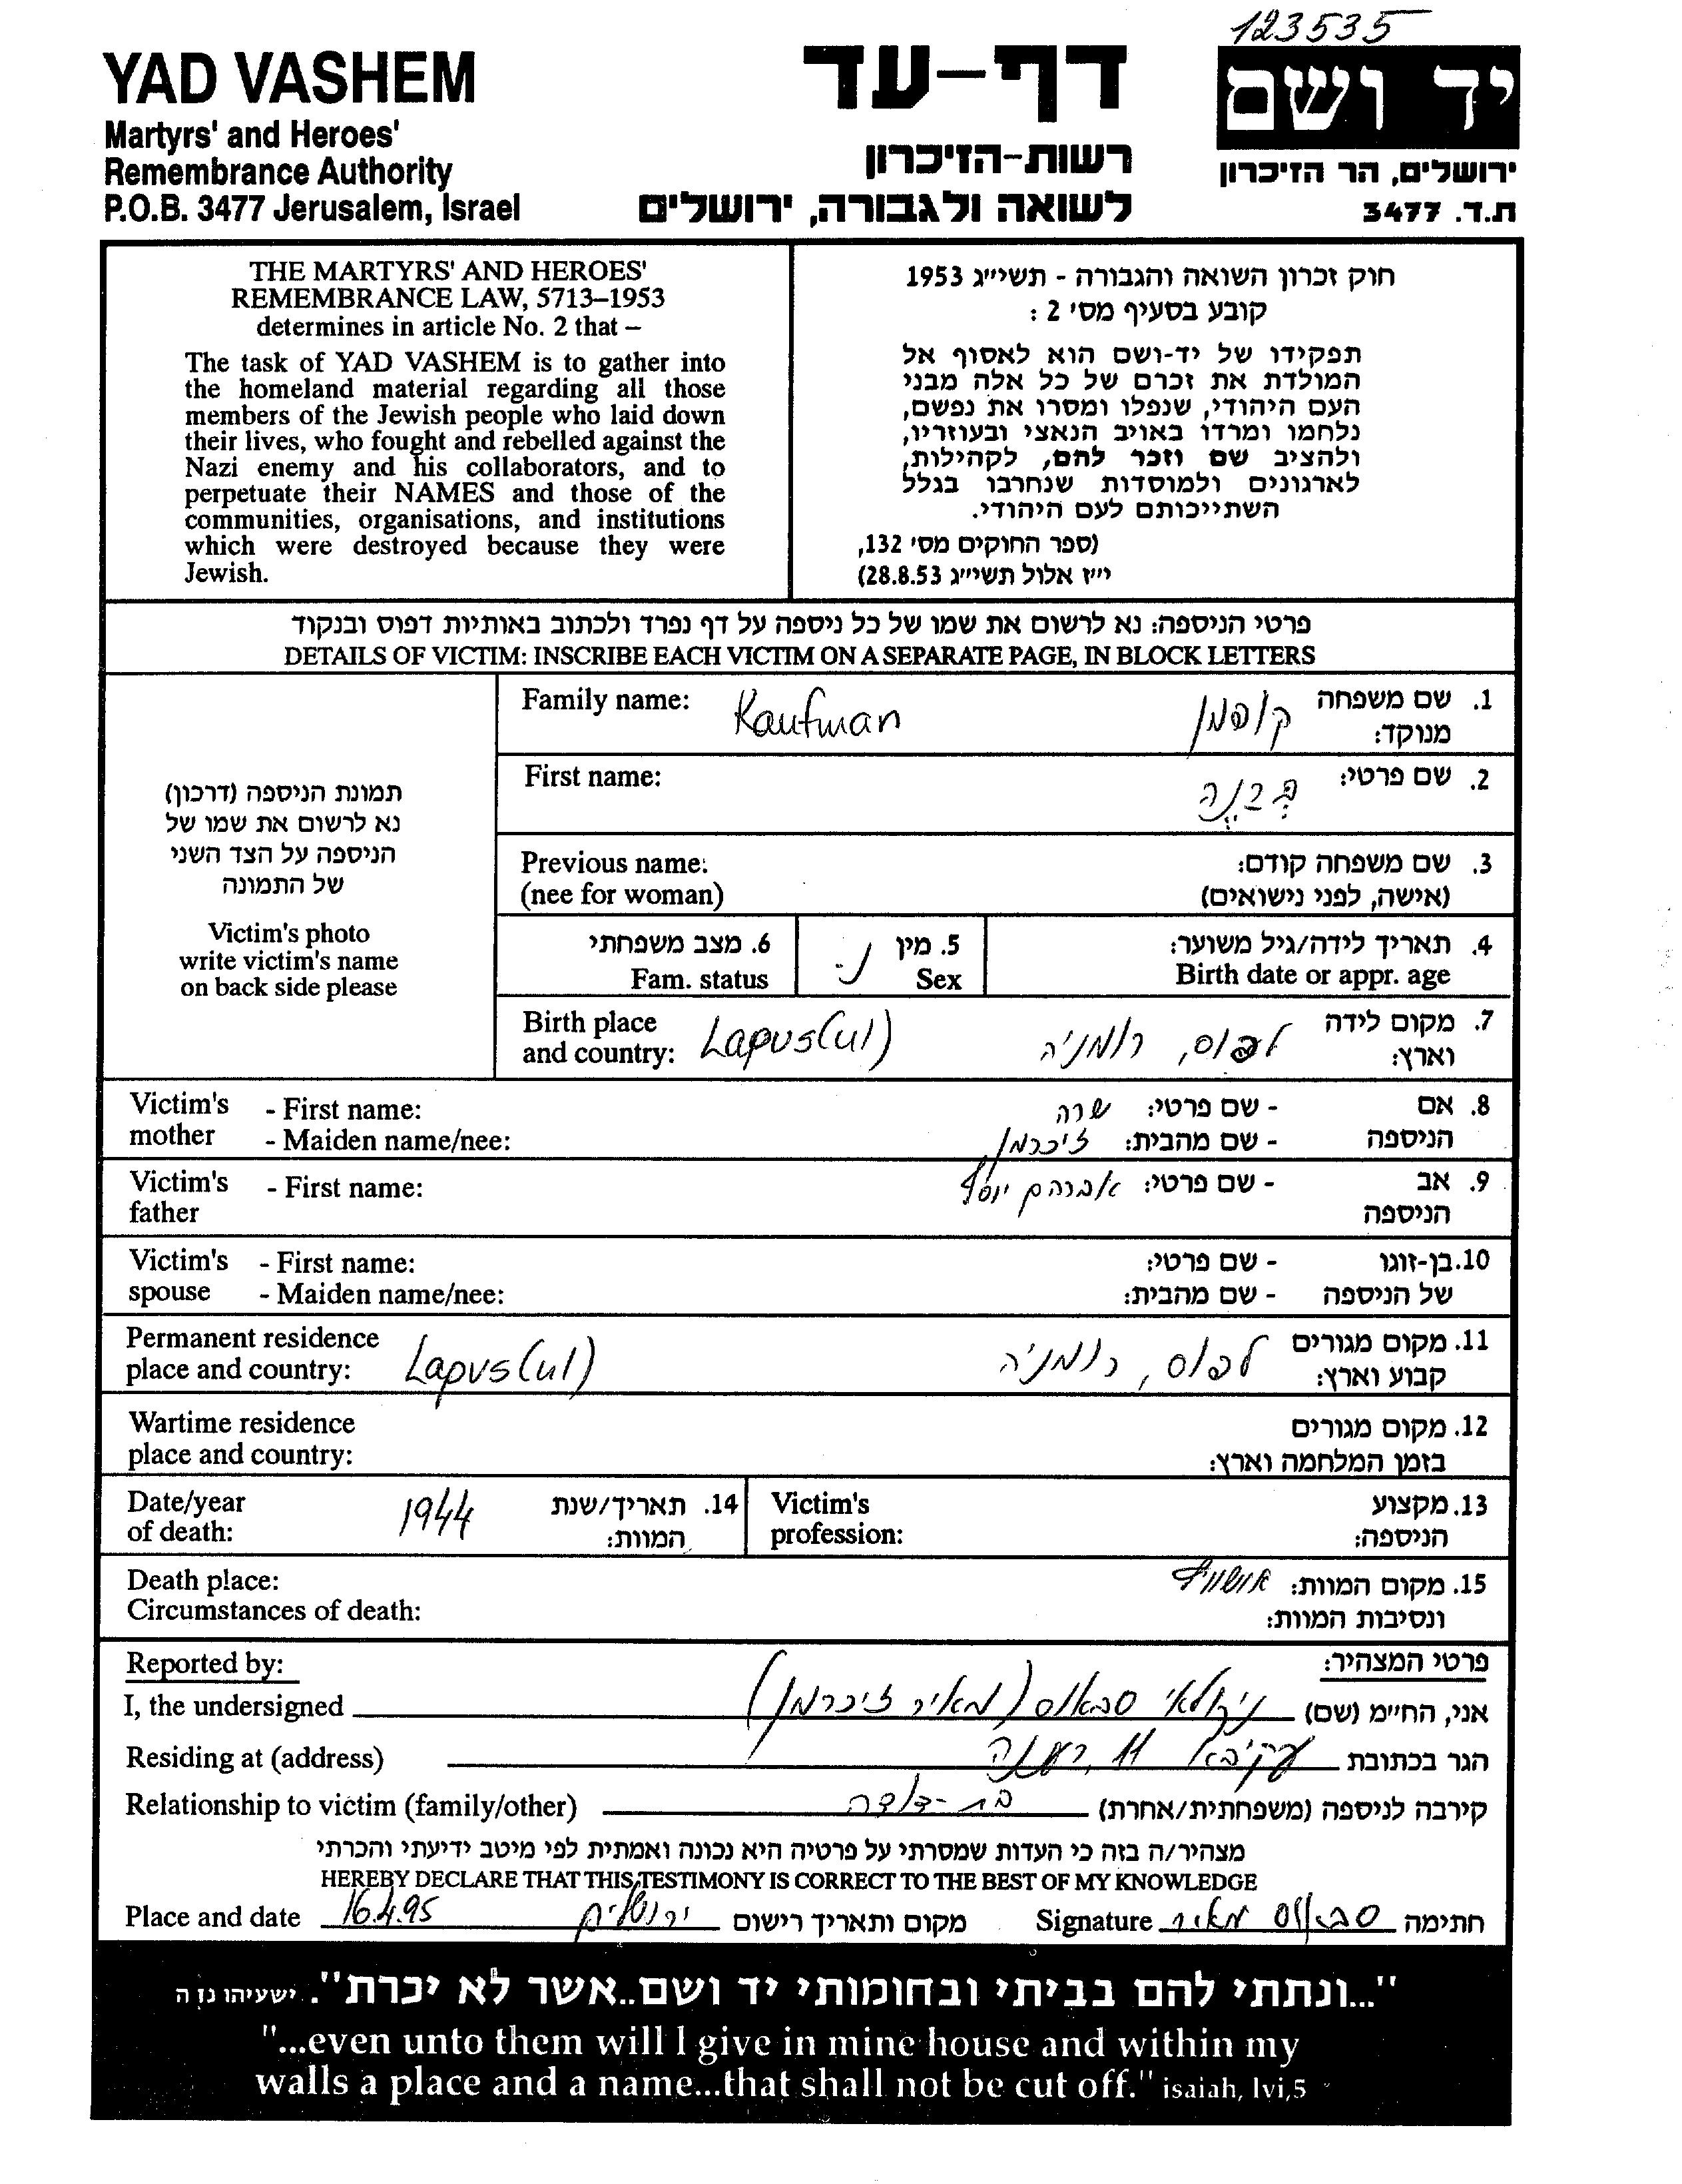 123535
YAD VASHEM
Martyrs' and Heroes'
Remembrance Authority
P.O.B. 3477 Jerusalem, Israel
דף-עד
רשות-הזיכרון
לשואה ולגבורה, ירושלים
יד ושם
ירושלים, הר הזיכרון
ת.ד. 3477
THE MARTYRS' AND HEROES'
REMEMBRANCE LAW, 5713–1953
determines in article No. 2 that –
The task of YAD VASHEM is to gather into
the homeland material regarding all those
members of the Jewish people who laid down
their lives, who fought and rebelled against the
Nazi enemy and his collaborators, and to
perpetuate their NAMES and those of the
communities, organisations, and institutions
which were destroyed because they were
Jewish.
חוק זכרון השואה והגבורה - תשי״ג 1953
קובע בסעיף מס׳ 2 :
תפקידו של יד-ושם הוא לאסוף אל
המולדת את זכרם של כל אלה מבני
העם היהודי, שנפלו ומסרו את נפשם,
נלחמו ומרדו באויב הנאצי ובעוזריו,
ולהציב שם וזכר להם, לקהילות,
לארגונים ולמוסדות שנחרבו בגלל
השתייכותם לעם היהודי.
(ספר החוקים מס׳ 132,
י״ז אלול תשי״ג 28.8.53)
פרטי הניספה: נא לרשום את שמו של כל ניספה על דף נפרד ולכתוב באותיות דפוס ובנקוד
DETAILS OF VICTIM: INSCRIBE EACH VICTIM ON A SEPARATE PAGE, IN BLOCK LETTERS
תמונת הניספה (דרכון)
נא לרשום את שמו של
הניספה על הצד השני
של התמונה
Victim's photo
write victim's name
on back side please
Family name: Kaufman קופמן 1. שם משפחה
מנוקד:
First name: 2. שם פרטי:
Previous name: 3. שם משפחה קודם:
(nee for woman) (אישה, לפני נישואים)
6. מצב משפחתי 5. מין נ. 4. תאריך לידה/גיל משוער:
Fam. status Sex Birth date or appr. age
Birth place 7. מקום לידה
and country: Lapus(ul) לפוס, רומניה וארץ:
Victim's - First name: שרה - שם פרטי: 8. אם
mother - Maiden name/nee: זיכרמן - שם מהבית: הניספה
Victim's - First name: אברהם יוסף - שם פרטי: 9. אב
father הניספה
Victim's - First name: - שם פרטי: 10. בן-זוגו
spouse - Maiden name/nee: - שם מהבית: של הניספה
Permanent residence 11. מקום מגורים
place and country: Lapus(ul) לפוס, רומניה קבוע וארץ:
Wartime residence 12. מקום מגורים
place and country: בזמן המלחמה וארץ:
Date/year 1944 14. תאריך/שנת Victim's 13. מקצוע
of death: המוות: profession: הניספה:
Death place: אושוויץ 15. מקום המוות:
Circumstances of death: ונסיבות המוות:
Reported by: פרטי המצהיר:
I, the undersigned סבאוס (מאיר זיכרמן) אני, החי״מ (שם)
Residing at (address) עקיבא 11, רעננה הגר בכתובת
Relationship to victim (family/other) בת-דודה קירבה לניספה (משפחתית/אחרת)
מצהיר/ה בזה כי העדות שמסרתי על פרטיה היא נכונה ואמתית לפי מיטב ידיעתי והכרתי
HEREBY DECLARE THAT THIS TESTIMONY IS CORRECT TO THE BEST OF MY KNOWLEDGE
Place and date 16.4.95 ירושלים מקום ותאריך רישום Signature מאיר חתימה
"...ונתתי להם בביתי ובחומותי יד ושם..אשר לא יכרת". ישעיהו נו ה
"...even unto them will I give in mine house and within my
walls a place and a name...that shall not be cut off." isaiah, lvi,5